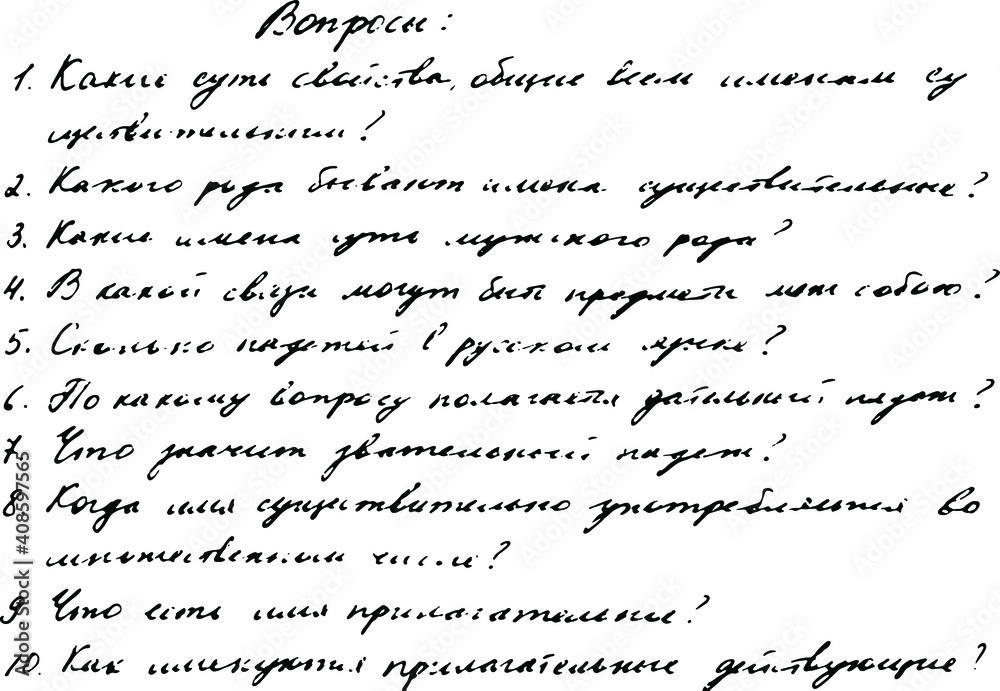 Вопросы:
1. Какие суть свойства, общие всем именам су
ществительным?
2. Какого рода бывают имена существительные?
3. Какие имена суть мужского рода?
4. В какой связи могут быть предметы меж собою?
5. Сколько падежей в русском языке?
6. По какому вопросу полагается дательный падеж?
7. Что значит звательный падеж?
8. Когда имя существительно употребляется во
множественном числе?
9. Что есть имя прилагательное?
10. Как именуются прилагательные действующие?
Adobe Stock | #408597565